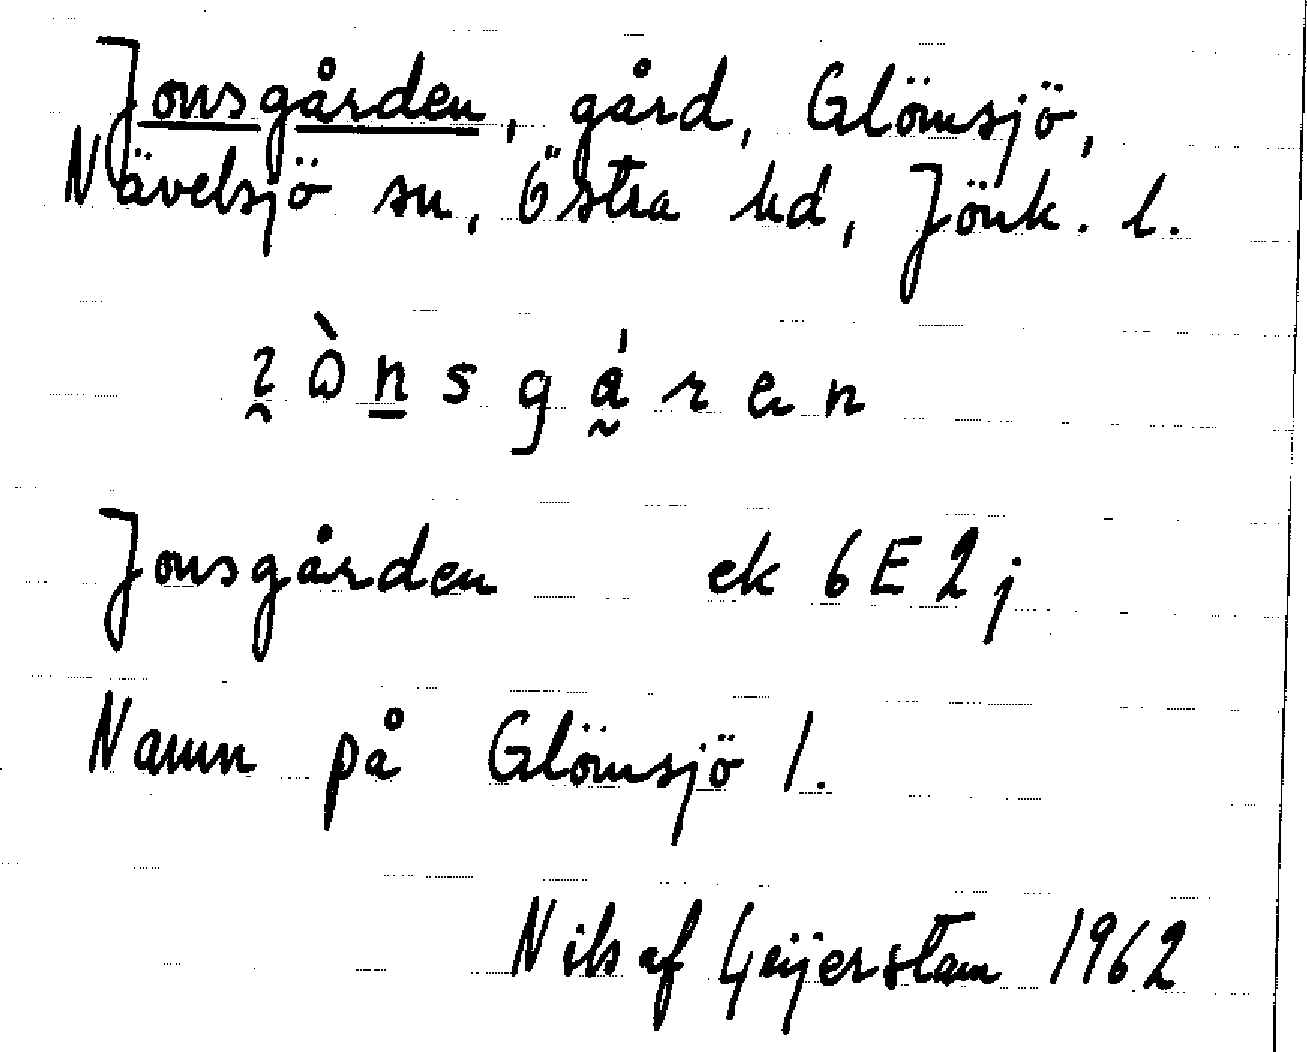 Jonsgården, gård, Glömsjö,
Nävelsjö sn, Östra hd, Jönk. l.
Jonsgården ek 6E2j
Namn på Glömsjö 1.
Nils af Geijerstam 1962